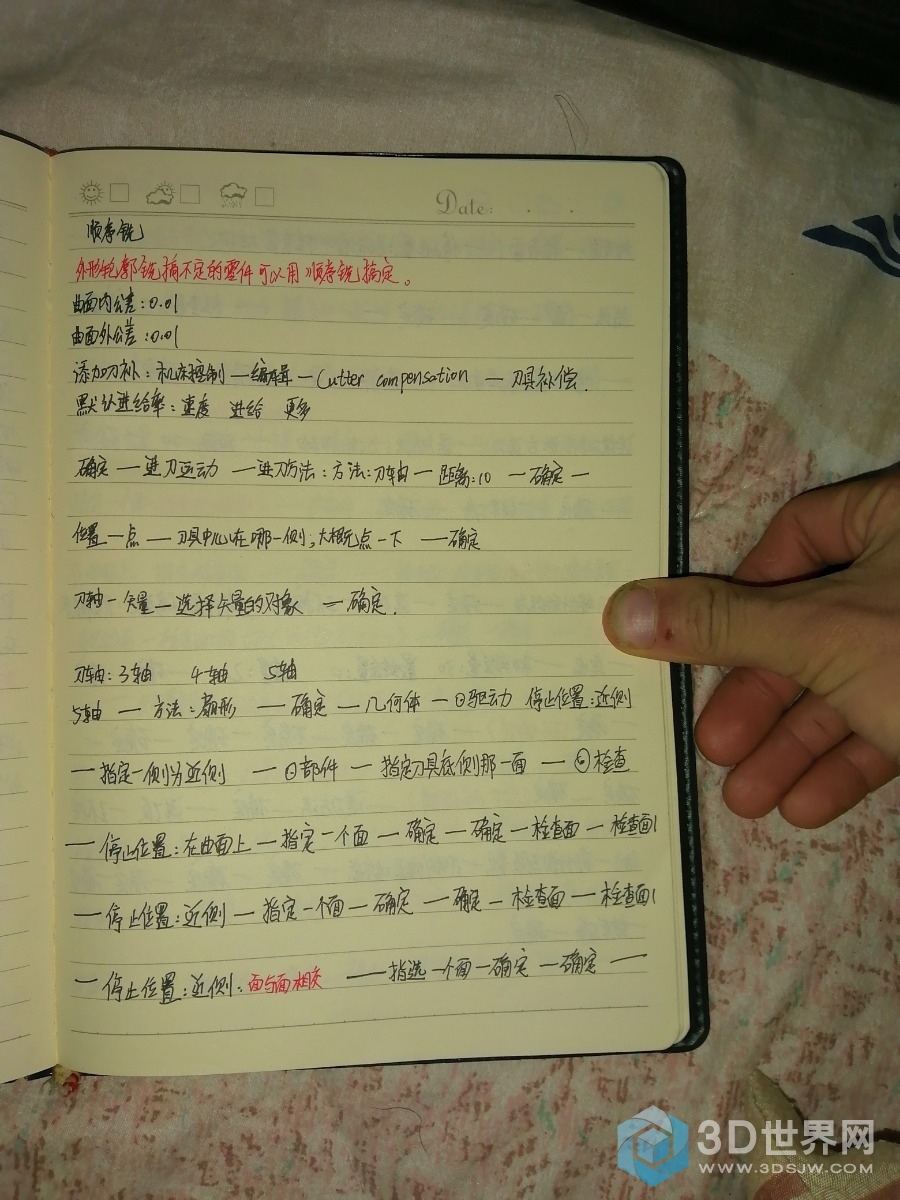 Date: . .
顺序铣
外形轮廓铣搞不定的零件可以用顺序铣搞定。
曲面内公差:0.01
曲面外公差:0.01
添加刀补:机床控制—编辑—Cutter compensation —刀具补偿.
默认进给率:速度 进给 更多
确定—进刀运动—进刀方法:方法:刀轴—距离:10—确定—
位置—点—刀具中心在哪一侧,大概点一下—确定
刀轴—矢量—选择矢量的对象—确定.
刀轴:3轴 4轴 5轴
5轴—方法:扇形—确定—几何体—⊙驱动 停止位置:近侧
—指定一侧为近侧—⊙部件—指定刀具底侧那一面—⊙检查
—停止位置:在曲面上—指定一个面—确定—确定—检查面—检查面1
—停止位置:近侧—指定一个面—确定—确定—检查面—检查面1
—停止位置:近侧:面与面相交—指选一个面—确定—确定—
3D世界网
WWW.3DSJW.COM